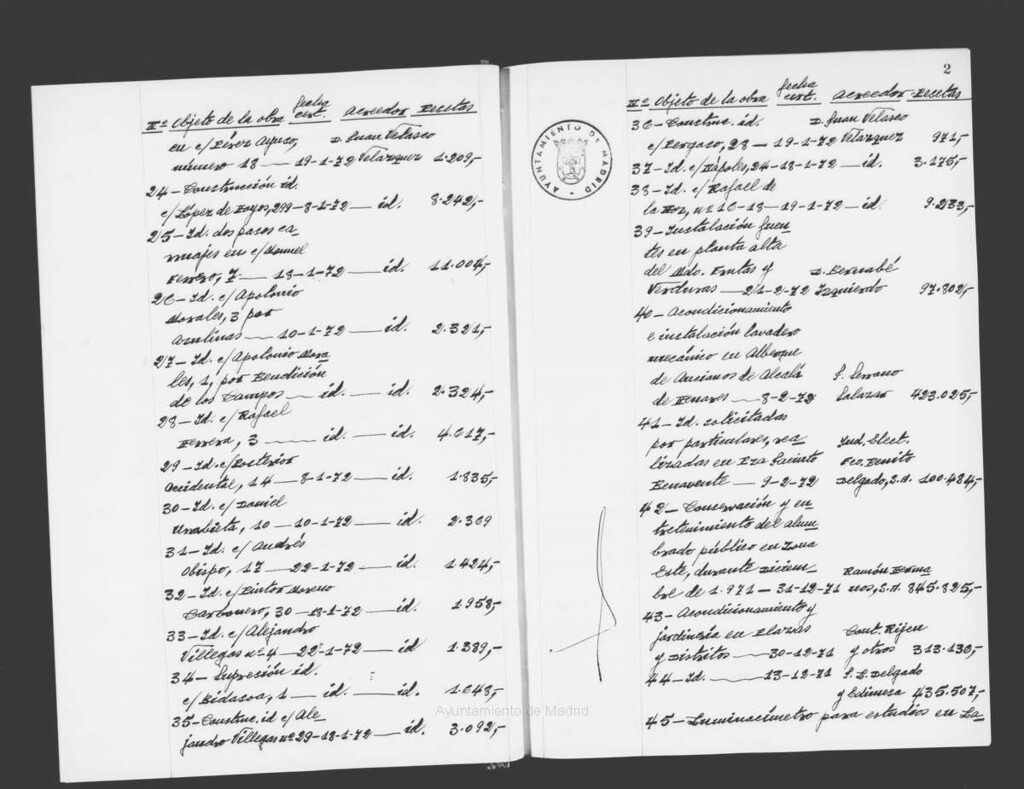 Nº Objeto de la obra fecha cert. acreedor Pesetas
en c/ Pérez Ayuso, D. Juan Velasco
número 18 — 19-1-72 Velazquez 1.209,-
24 - Construcción id.
c/ López de Hoyos, 299 - 8-1-72 — id. 8.242,-
25 - Id. dos pasos ca-
rruajes en c/ Manuel
Ferrero, 7 — 18-1-72 — id. 11.004,-
26 - Id. c/ Apolonio
Morales, 3 por
Azulinas — 10-1-72 — id. 2.321,-
27 - Id. c/ Apolonio Mora
les, 1, por Bendición
de los Campos — id. — id. 2.324,-
28 - Id. c/ Rafael
Herrera, 3 — id. — id. 4.617,-
29 - Id. c/ Posterior
Occidental, 14 — 8-1-72 — id. 1.835,-
30 - Id. c/ Daniel
Urrabieta, 10 — 10-1-72 — id. 2.369
31 - Id. c/ Andrés
Obispo, 17 — 22-1-72 — id. 1.424,-
32 - Id. c/ Pintor Moreno
Carbonero, 30 — 18-1-72 — id. 1.958,-
33 - Id. c/ Alejandro
Villegas nº 4 — 22-1-72 — id. 1.389,-
34 - Supresión id.
c/ Bidasoa, 1 — id. — id. 1.048,-
35 - Construc. id c/ Ale-
jandro Villegas nº 29 - 18-1-72 — id. 3.092,-
2
Nº Objeto de la obra fecha cert. acreedor Pesetas
36 - Construc. id. D. Juan Velasco
c/ Bergaso, 28 — 19-1-72 Velazquez 971,-
37 - Id. c/ Nápoles, 24 - 18-1-72 — id. 3.175,-
38 - Id. c/ Rafael de
la Hoz, nº 16-18 — 19-1-72 — id. 9.233,-
39 - Instalación fuen-
tes en planta alta
del Mdo. Frutas y D. Bernabé
Verduras — 21-2-72 Izquierdo 97.802,-
40 - Acondicionamiento
e instalación lavadero
mecánico en Albergue
de Ancianos de Alcalá S. Serrano
de Henares — 8-2-72 Salazar 423.025,-
41 - Id. solicitadas
por particulares, rea- Ind. Elect.
lizadas en Pza Jacinto Fco. Benito
Benavente — 9-2-72 Delgado, S.A. 100.484,-
42 - Conservación y en
tretenimiento del alum-
brado público en Zona
Este, durante Diciem- Ramón Herma
bre de 1.971 — 31-12-71 nos, S.A. 845.825,-
43 - Acondicionamiento y
jardinería en Plazas Cont. Rijen
y Distritos — 30-12-71 y otros 313.130,-
44 - Id. — 13-12-71 Delgado
y Edimesa 435.507,-
45 - Luminacímetro para estudios en La-
AYUNTAMIENTO DE MADRID
Ayuntamiento de Madrid